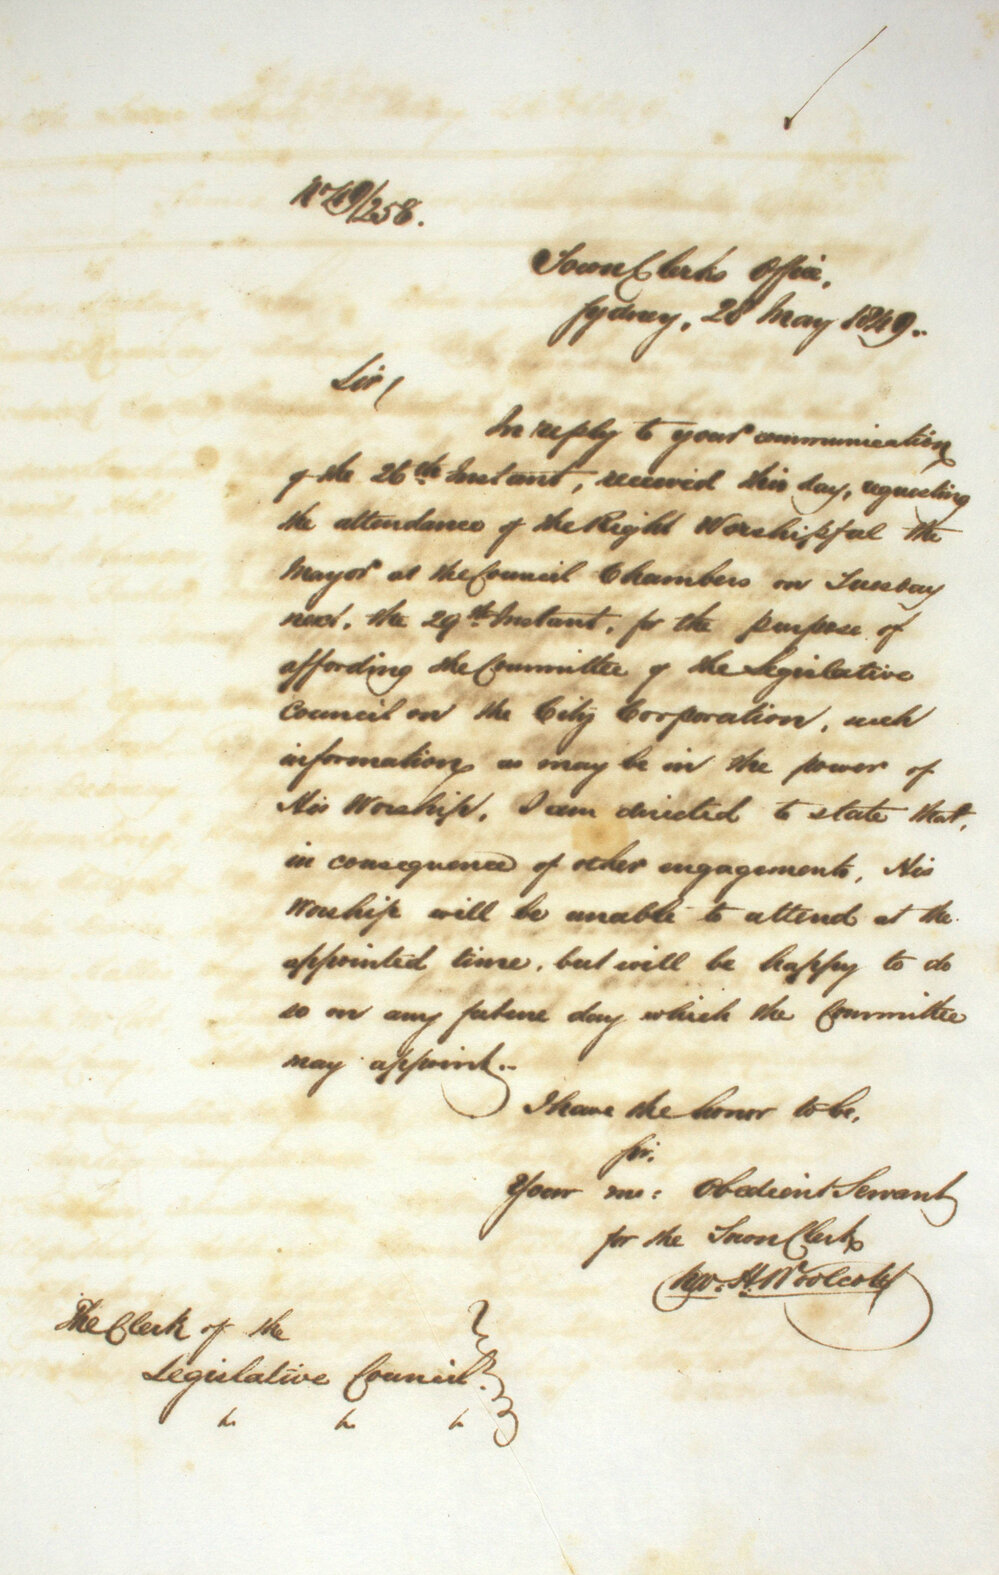 No 49/258.
Town Clerks Office,
Sydney, 28 May 1849..
Sir,
In reply to your communication
of the 26th Instant, received this day, requesting
the attendance of the Right Worshipful the
Mayor at the Council Chambers on Tuesday
next, the 29th Instant, for the purpose of
affording the Committee of the Legislative
Council on the City Corporation, such
information as may be in the power of
His Worship, I am directed to state that,
in consequence of other engagements, His
Worship will be unable to attend at the
appointed time, but will be happy to do
so on any future day which the Committee
may appoint..
I have the honor to be,
Sir,
Your mo: Obedient Servant
for the Town Clerk
H. Woolcott
The Clerk of the
Legislative Council.